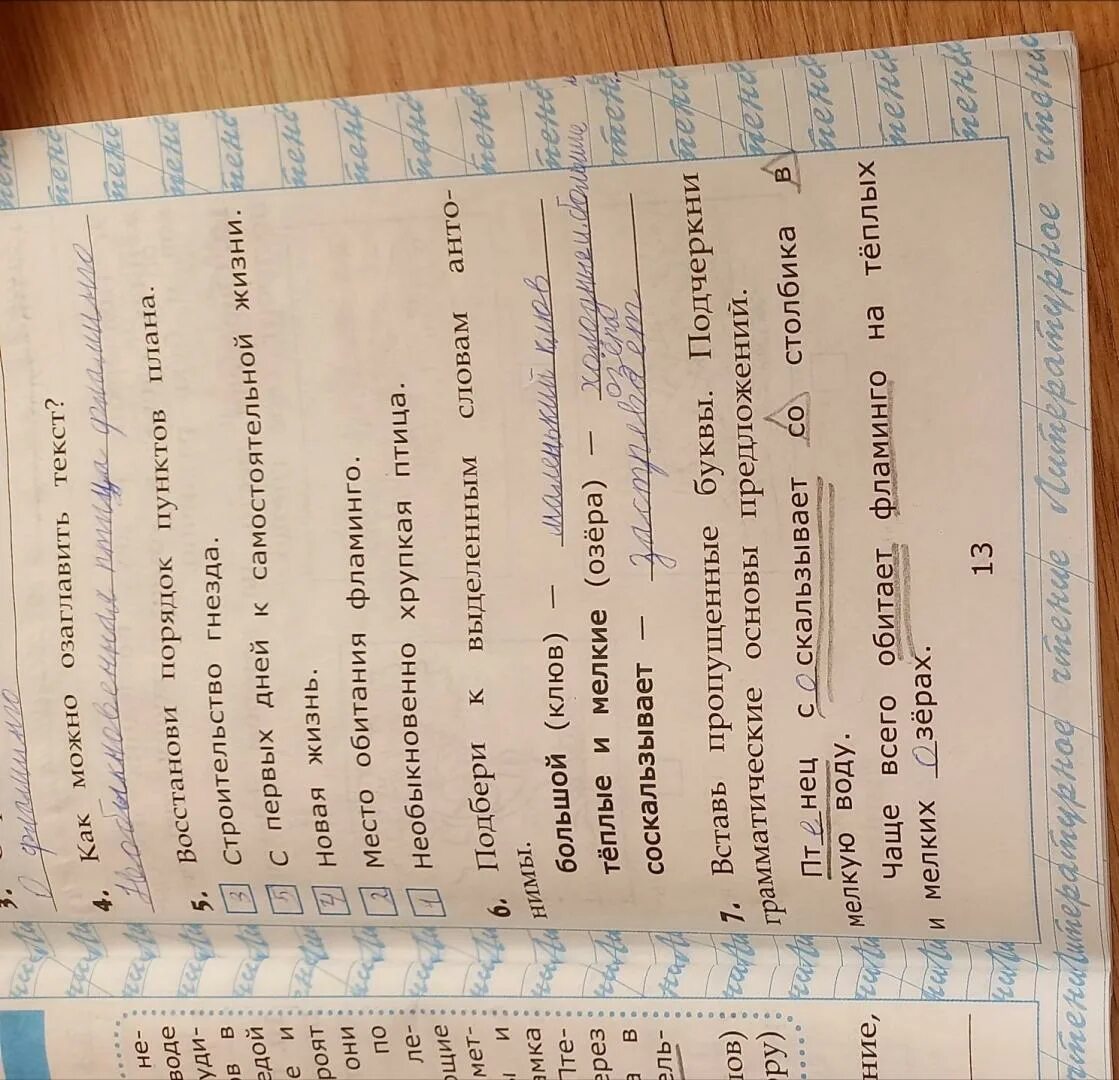 не-
воде
уди-
ов в
едой
е и
роят
они
по
ле-
ющие
мет-
ы и
амка
Пте-
ерез
а в
ель-
лов)
ору)
ние,
3.
О фламинго
4. Как можно озаглавить текст?
Необыкновенная птица фламинго
5. Восстанови порядок пунктов плана.
3 Строительство гнезда.
5 С первых дней к самостоятельной жизни.
4 Новая жизнь.
2 Место обитания фламинго.
1 Необыкновенно хрупкая птица.
6. Подбери к выделенным словам анто-
нимы.
большой (клюв) — маленький клюв
тёплые и мелкие (озёра) — холодные и большие
озёра
соскальзывает — застревает
7. Вставь пропущенные буквы. Подчеркни
грамматические основы предложений.
Птенец соскальзывает со столбика в
мелкую воду.
Чаще всего обитает фламинго на тёплых
и мелких озёрах.
13
Литературное чтение Литературное чтение